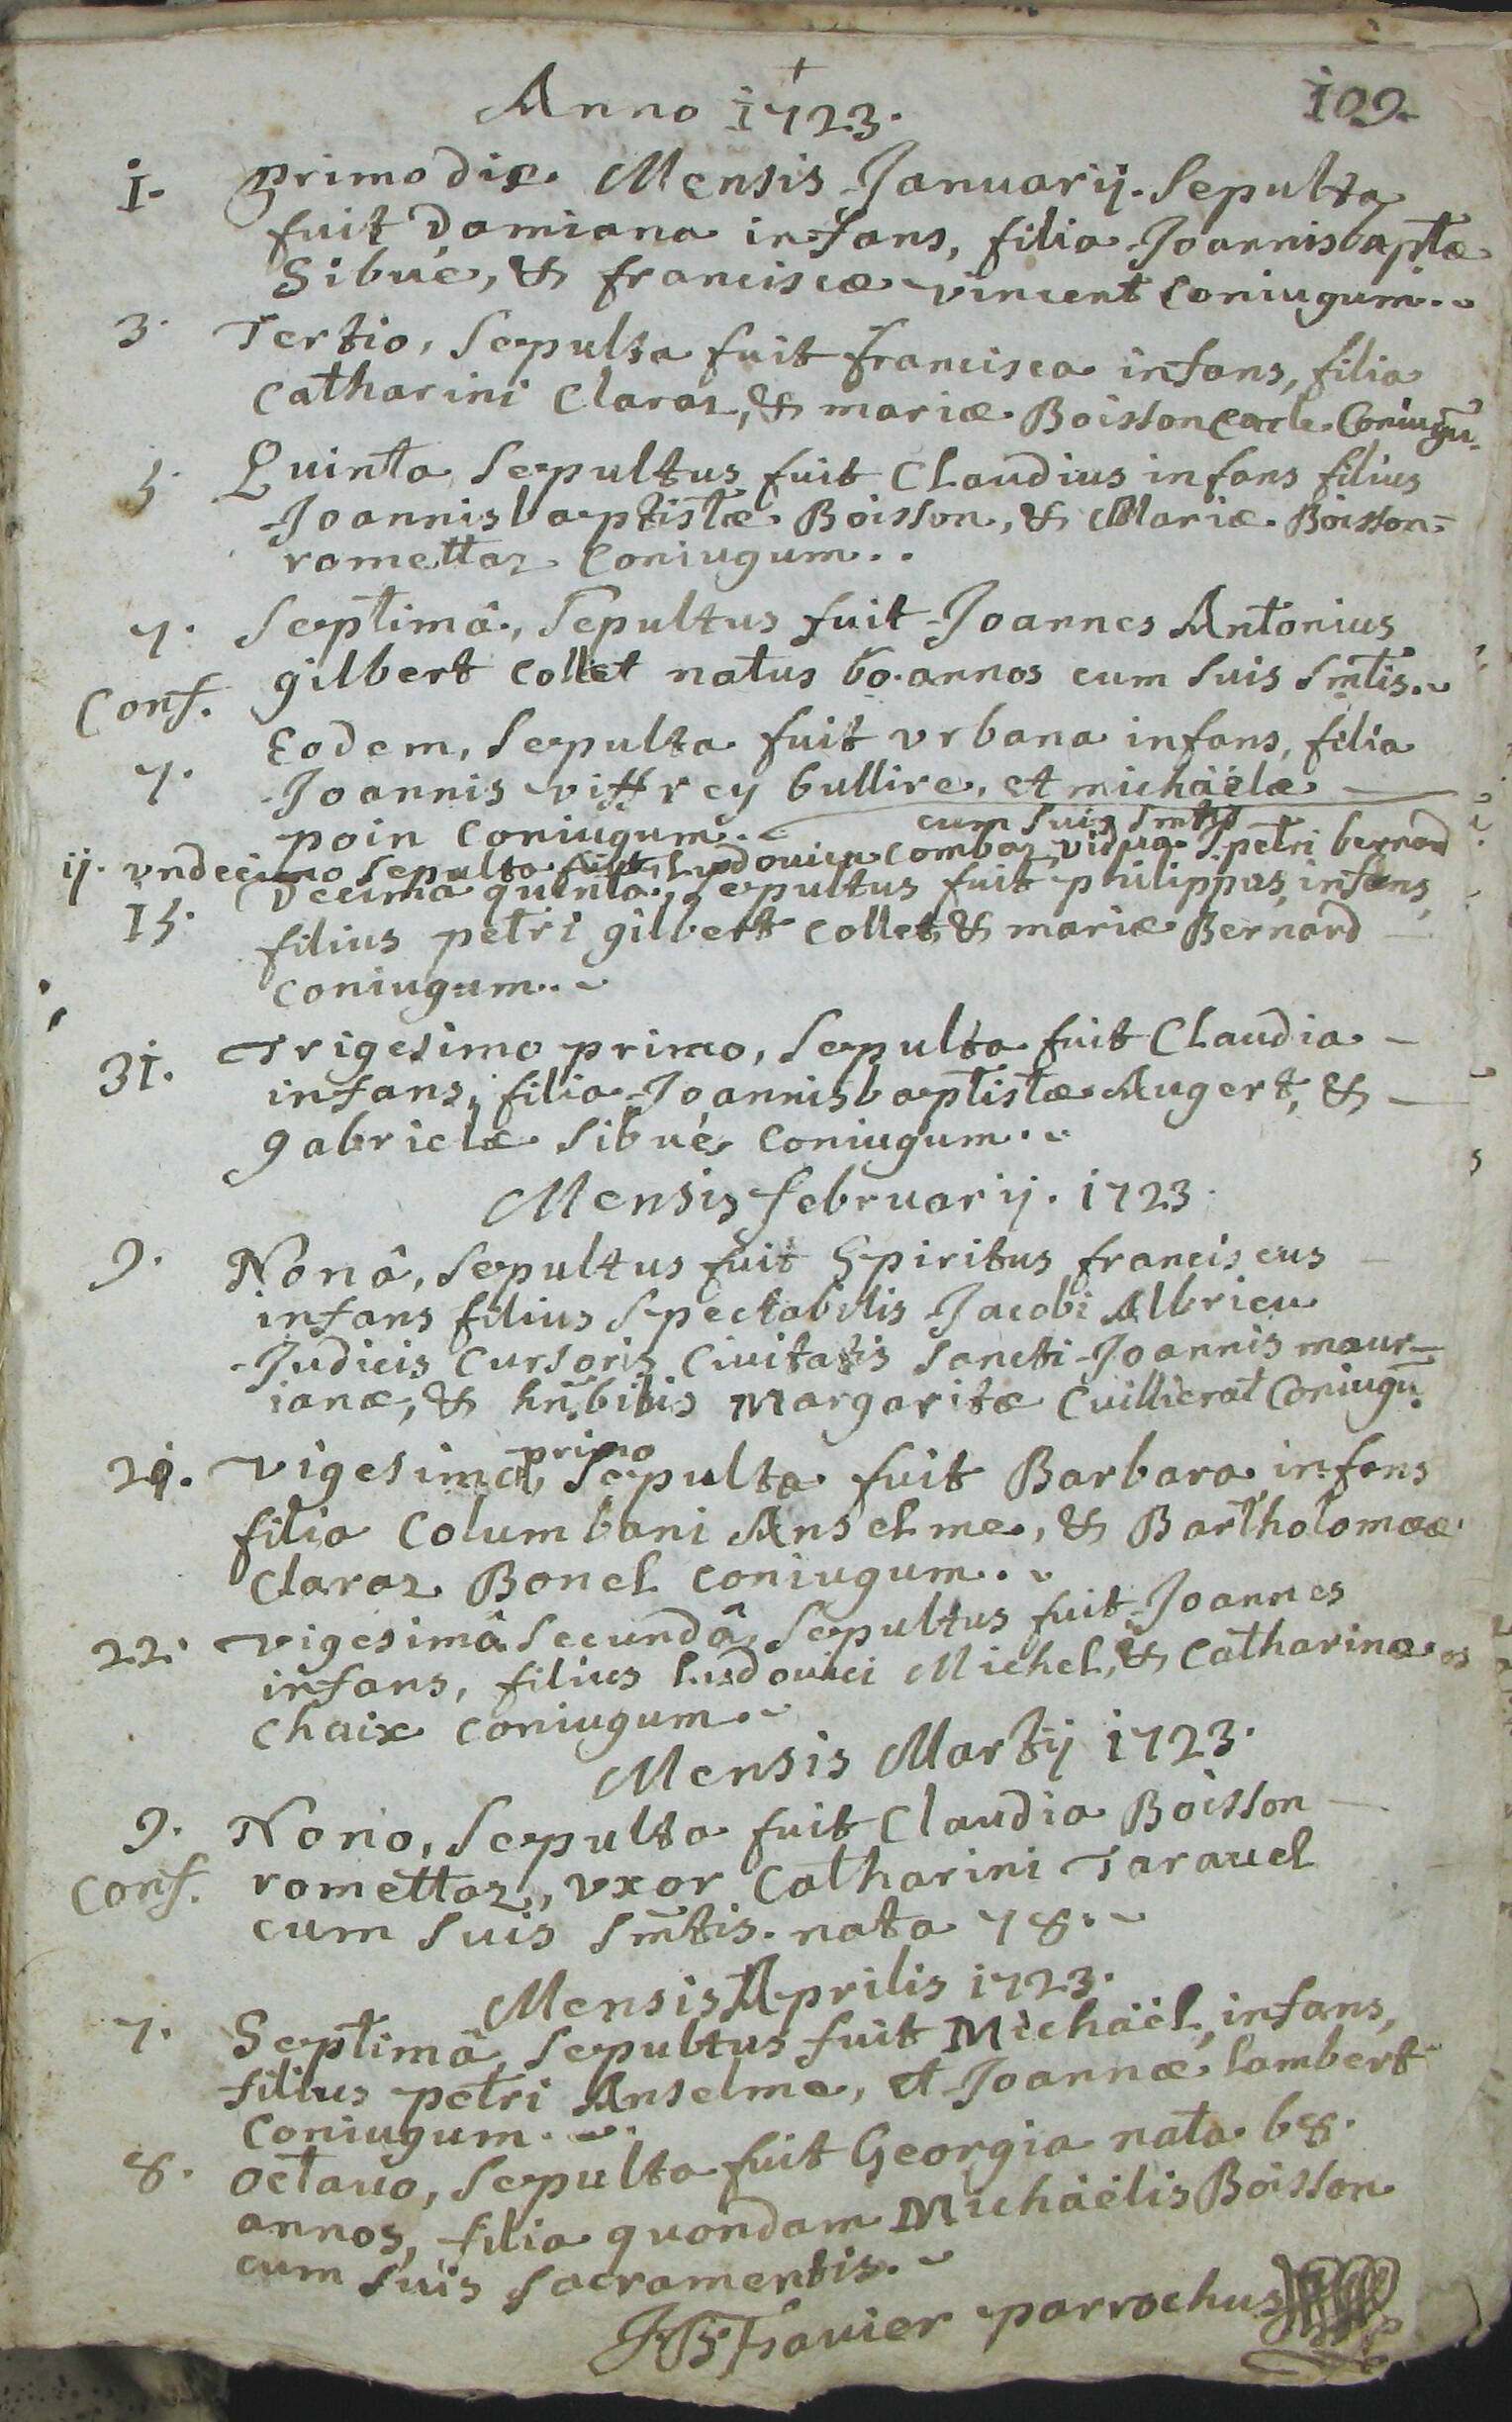 +
Anno 1723. 109.
1. primo die Mensis Januarij. Sepulta
fuit Damiana infans, filia Joannisbaptæ
Sibué, & franciscæ vincent Coniugum..
3. Tertio, Sepulta fuit francisca infans, filia
Catharini Claraz, & mariæ Boisson Coniugũ.
5. Quinta Sepultus fuit Claudius infans filius
Joannisbaptistæ Boisson, & Mariæ Boisson=
ramettaz Coniugum..
7. Septimâ, Sepultus fuit Joannes Antonius
Conf. gilbert collet natus 60. annos cum suis Sm̃tis.
7. Eodem, Sepulta fuit vrbana infans, filia
Joannis viffrey bullire, et michäelæ
poin Coniugum..
cum suis Sm̃tis
ij. vndecimo Sepulta fuit Ludovica Combaz vidua petri bernard
15. Decima quinta, Sepultus fuit philippus, infans,
filius petri gilbert Collet & mariæ Bernard
Coniugum..
31. Trigesimo primo, Sepulta fuit Claudia
infans, filia Joannisbaptistæ Augert, &
gabrielæ Sibué Coniugum..
Mensis februarij. 1723.
9. Nonâ, Sepultus fuit Spiritus franciscus
infans filius Spectabilis Jacobi Albrieu
Judicis Cursoris Civitatis Sancti Joannis maur-
ianæ, & hñ.bilis Margaritæ Cuillierat Coniugũ.
21. vigesimo primo, Sepulta fuit Barbara infans
filia Columbani Anselme, & Bartholomææ
Claraz Bonel Coniugum..
22. vigesimâ Secundâ, Sepultus fuit Joannes
infans, filius Ludouici Michel, & Catharinæ
Chaix Coniugum.
Mensis Martij 1723.
9. Nono, Sepulta fuit Claudia Boisson
Conf. ramettaz, vxor Catharini Tarauel
cum suis Sm̃tis. nata 78.
Mensis Aprilis 1723.
7. Septimâ, Sepultus fuit Michäel, infans,
filius petri Anselme, et Joannæ Lambert
Coniugum.
8. octauo, Sepulta fuit Georgia nata 68.
annos, filia quondam Michäelis Boisson
cum suis Sacramentis.
parrochus